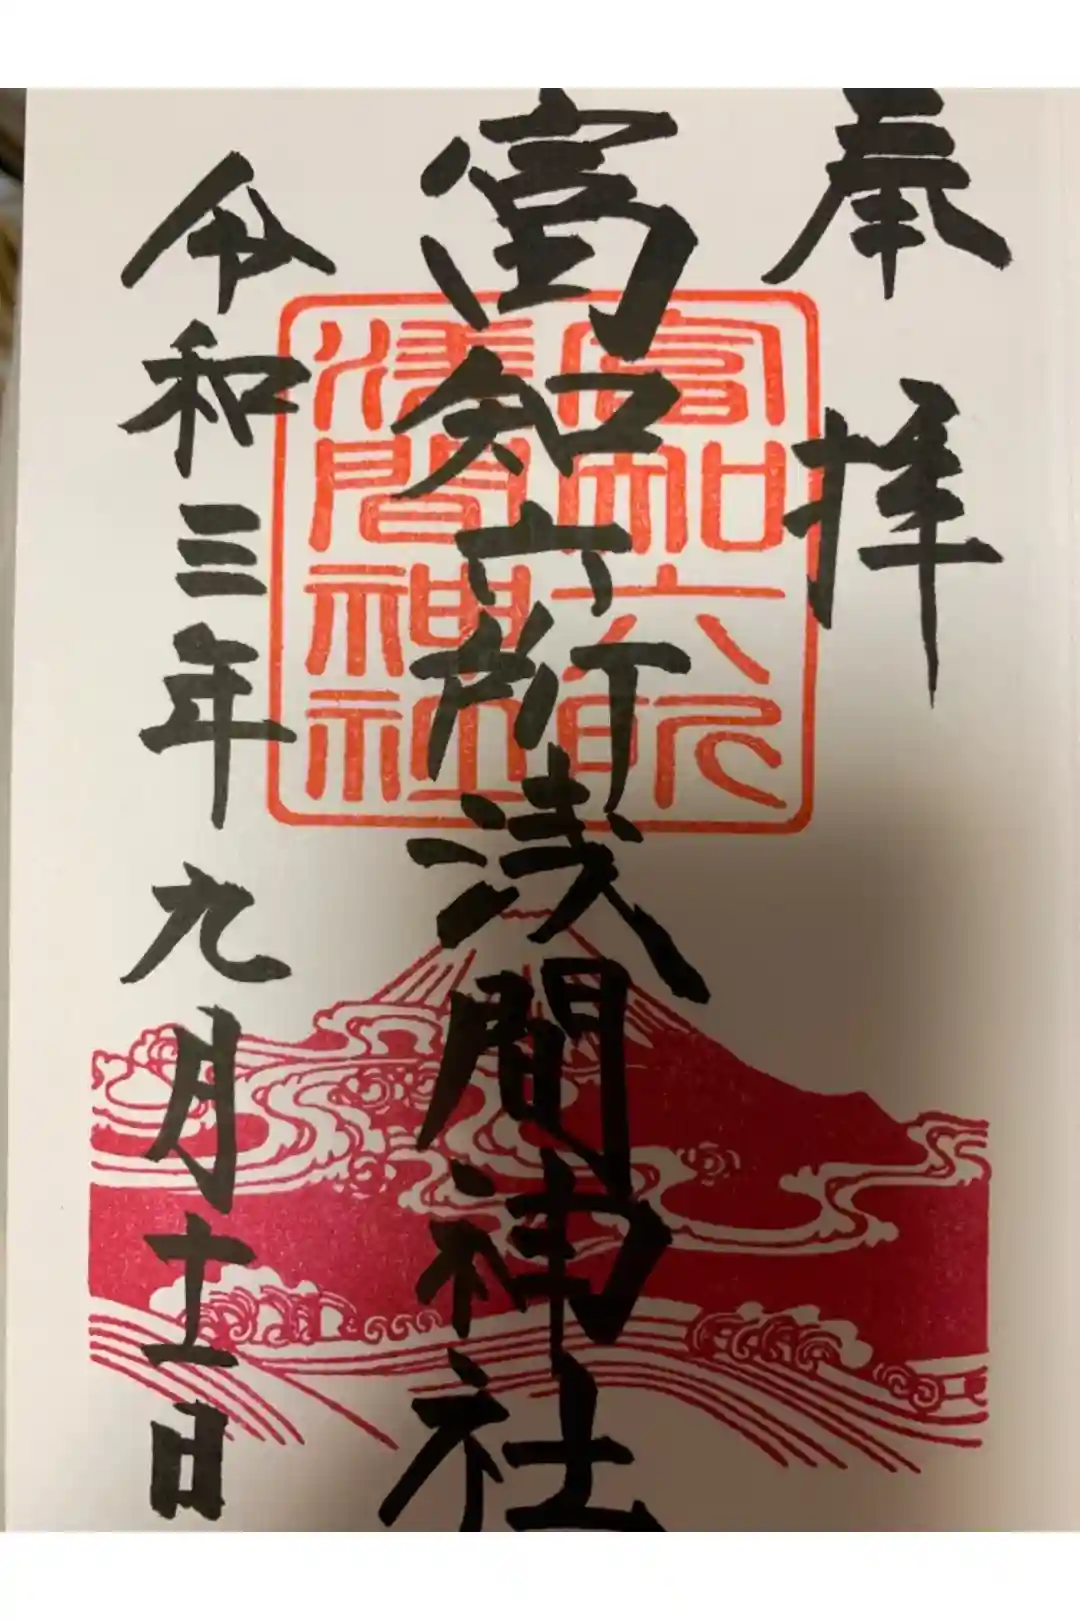 奉拝
富知六所浅間神社
富知六所
浅間神社
令和三年九月十一日